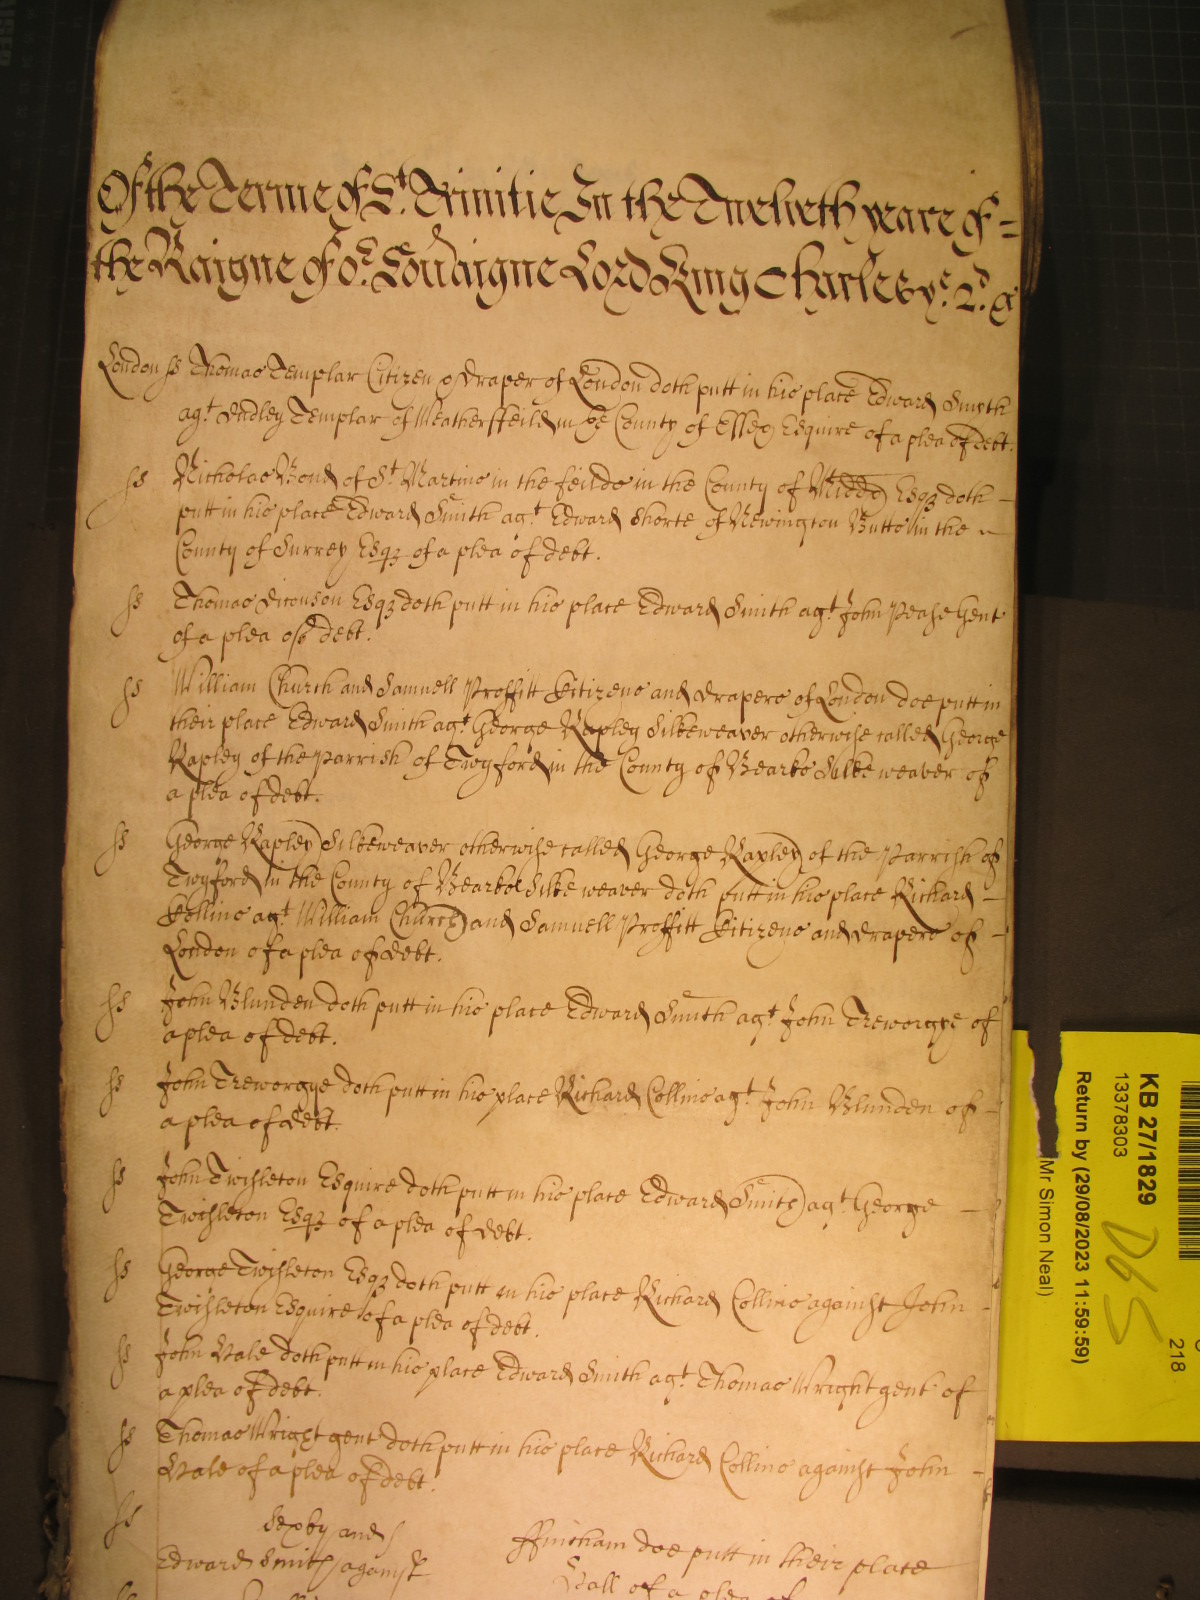 Of the Terme of St. Trinitie In the Twelveth yeare of =
the Raigne of or. Soveraigne Lord King Charles ye. 2d. &
London ss Thomas Templar Citizen & draper of London doth putt in his place Edward Smyth
agt. dudley Templar of Weathersffeild in ye County of Essex Esquire of a plea of debt.
ss Nicholas Bond of St. Martins in the feilds in the County of Middx Esqz doth –
putt in his place Edward Smith agt. Edward Shorte of Newington Butts in the
County of Surrey Esqz of a plea of debt.
ss Thomas diconson Esqz doth putt in his place Edward Smith agt. John Pease Gent
of a plea of debt.
ss William Church and Samuell Proffitt Citizens and drapers of London doe putt in
their place Edward Smith agt. George Rapley Silkeweaver otherwise called George
Rapley of the Parrish of Twyford in the County of Bearks Silke weaver of
a plea of debt.
ss George Rapley Silkeweaver otherwise called George Rapley of the Parrish of
Twyford in the County of Bearks Silke weaver doth putt in his place Richard –
Collins agt. William Church and Samuell Proffitt Citizens and drapers of –
London of a plea of debt.
ss John Blunden doth putt in his place Edward Smith agt. John Treworgye of
a plea of debt.
ss John Treworgye doth putt in his place Richard Collins agt. John Blunden of –
a plea of debt.
ss John Twisleton Esquire doth putt in his place Edward Smith agt. George –
Twisleton Esqz of a plea of debt.
ss George Twisleton Esqz doth putt in his place Richard Collins against John –
Twisleton Esquire of a plea of debt.
ss John Vale doth putt in his place Edward Smith agt. Thomas Wright gent of
a plea of debt.
ss Thomas Wright gent doth putt in his place Richard Collins against John –
Vale of a plea of debt.
ss Sexby and ffincham doe putt in their place
Edward Smith against Hall of a plea of
KB 27/1829
13378303
Return by (29/08/2023 11:59:59)
Mr Simon Neal)
D65
218